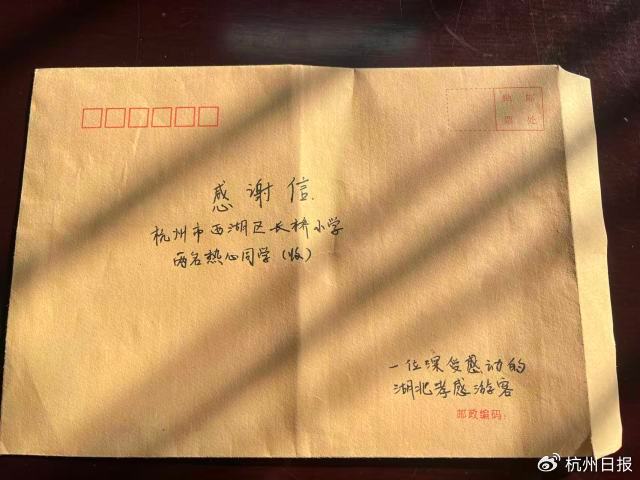 贴 邮
票 处
感谢信
杭州市西湖区长桥小学
两名热心同学（收）
一位深受感动的
湖北孝感游客
邮政编码：
杭州日报